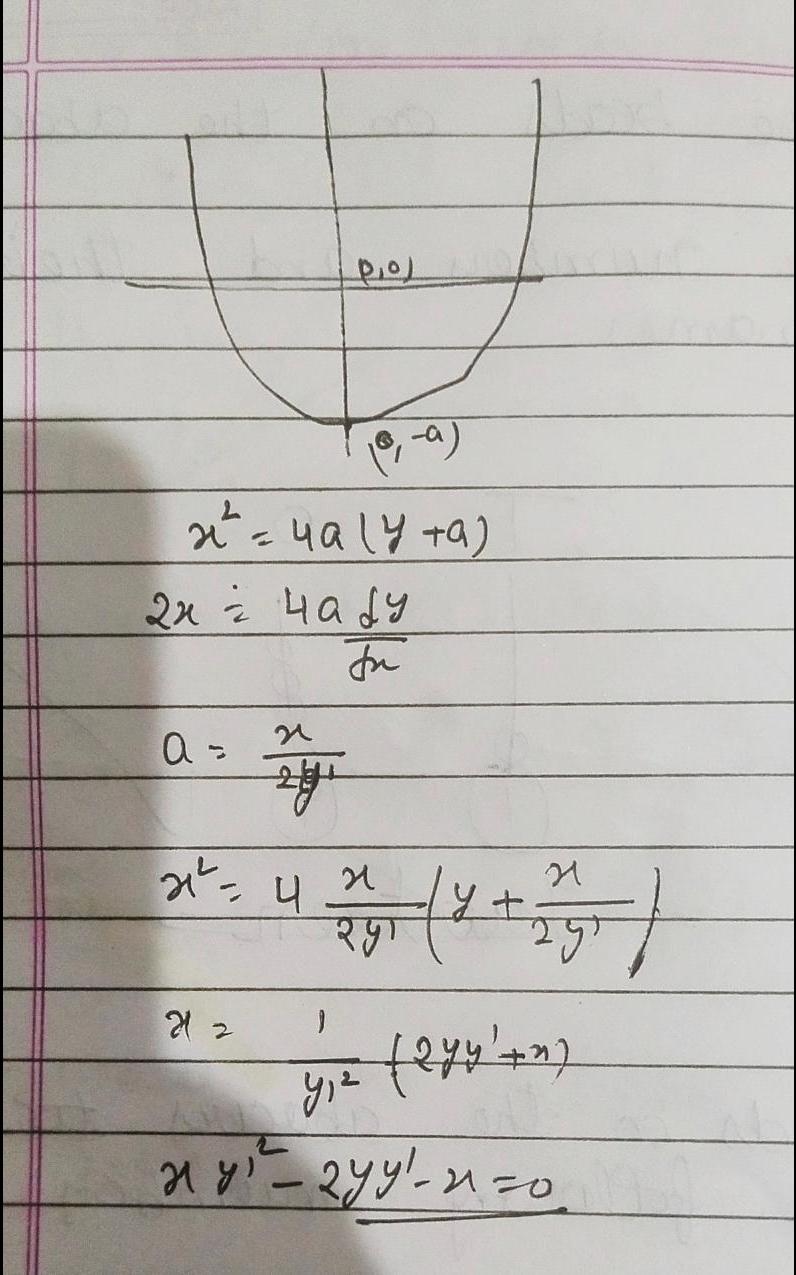 (0,0)
(0,-a)
x² = 4a(y+a)
2x = 4a dy/dx
a = x/2y'
x² = 4 x/2y' (y + x/2y')
x = 1/y'² (2yy'+x)
xy'² - 2yy' - x = 0